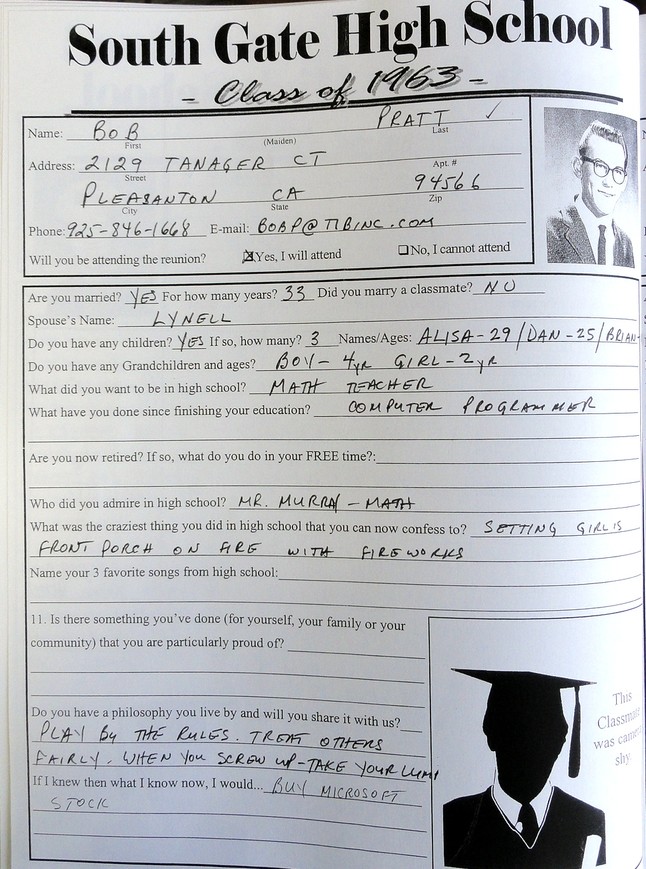 South Gate High School
- Class of 1963 -
Name: BOB PRATT ✓
First (Maiden) Last
Address: 2129 TANAGER CT
Street Apt. #
PLEASANTON CA 94566
City State Zip
Phone: 925-846-1668 E-mail: BOBP@TIBINC.COM
Will you be attending the reunion? ☒Yes, I will attend ☐No, I cannot attend
Are you married? YES For how many years? 33 Did you marry a classmate? NO
Spouse's Name: LYNELL
Do you have any children? YES If so, how many? 3 Names/Ages: ALISA-29/DAN-25/BRIAN-
Do you have any Grandchildren and ages? BOY- 4yr GIRL-2yr
What did you want to be in high school? MATH TEACHER
What have you done since finishing your education? COMPUTER PROGRAMMER
Are you now retired? If so, what do you do in your FREE time?:
Who did you admire in high school? MR. MURRAY - MATH
What was the craziest thing you did in high school that you can now confess to? SETTING GIRL'S
FRONT PORCH ON FIRE WITH FIREWORKS
Name your 3 favorite songs from high school:
11. Is there something you've done (for yourself, your family or your
community) that you are particularly proud of?
Do you have a philosophy you live by and will you share it with us?
PLAY BY THE RULES. TREAT OTHERS
FAIRLY. WHEN YOU SCREW UP-TAKE YOUR LUMPS
If I knew then what I know now, I would... BUY MICROSOFT
STOCK
This
Classmate
was camera
shy.